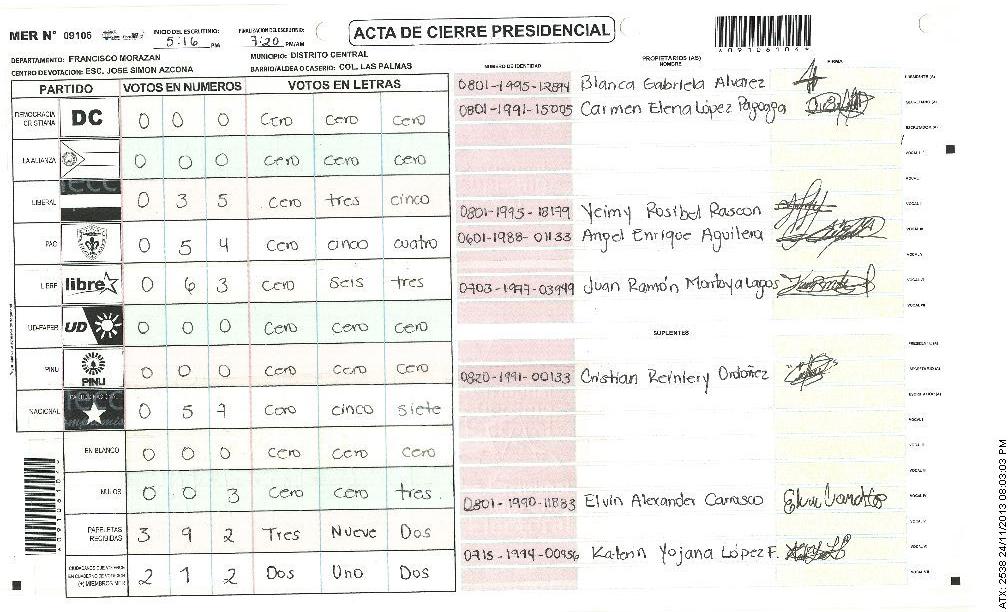 MER N° 09106
INICIO DEL ESCRUTINIO: 5:16 PM
FINALIZACION DEL ESCRUTINIO: 7:20 PM/AM
ACTA DE CIERRE PRESIDENCIAL
DEPARTAMENTO: FRANCISCO MORAZAN
MUNICIPIO: DISTRITO CENTRAL
CENTRO DE VOTACION: ESC. JOSE SIMON AZCONA
BARRIO/ALDEA O CASERIO: COL. LAS PALMAS
PARTIDO VOTOS EN NUMEROS VOTOS EN LETRAS
DEMOCRACIA CRISTIANA DC 0 0 0 Cero Cero Cero
LA ALIANZA 0 0 0 Cero Cero Cero
LIBERAL 0 3 5 Cero tres cinco
PAC 0 5 4 Cero cinco cuatro
LIBRE libre 0 6 3 Cero seis tres
UD-FAPER UD 0 0 0 Cero Cero Cero
PINU PINU 0 0 0 Cero Cero Cero
NACIONAL 0 5 7 Cero cinco siete
EN BLANCO 0 0 0 Cero Cero Cero
NULOS 0 0 3 Cero Cero tres.
PAPELETAS RECIBIDAS 3 9 2 Tres Nueve Dos
2 1 2 Dos Uno Dos
NUMERO DE IDENTIDAD
PROPIETARIOS (AS)
NOMBRE
FIRMA
Blanca Gabriela Alvarez
0801-1991-15005 Carmen Elena López
0801-1995-18179 Yeimy Rosibel Rascon
0601-1988-01133 Angel Enrique Aguilera
0703-1977-03949 Juan Ramón Montoya Lagos
SUPLENTES
0820-1991-00133 Cristian Reiniery Ordoñez
0801-1990-11883 Elvin Alexander Carrasco
0715-1994-00956 Yojana López F.
ATX: 2538 24/11/2013 08:03:03 PM